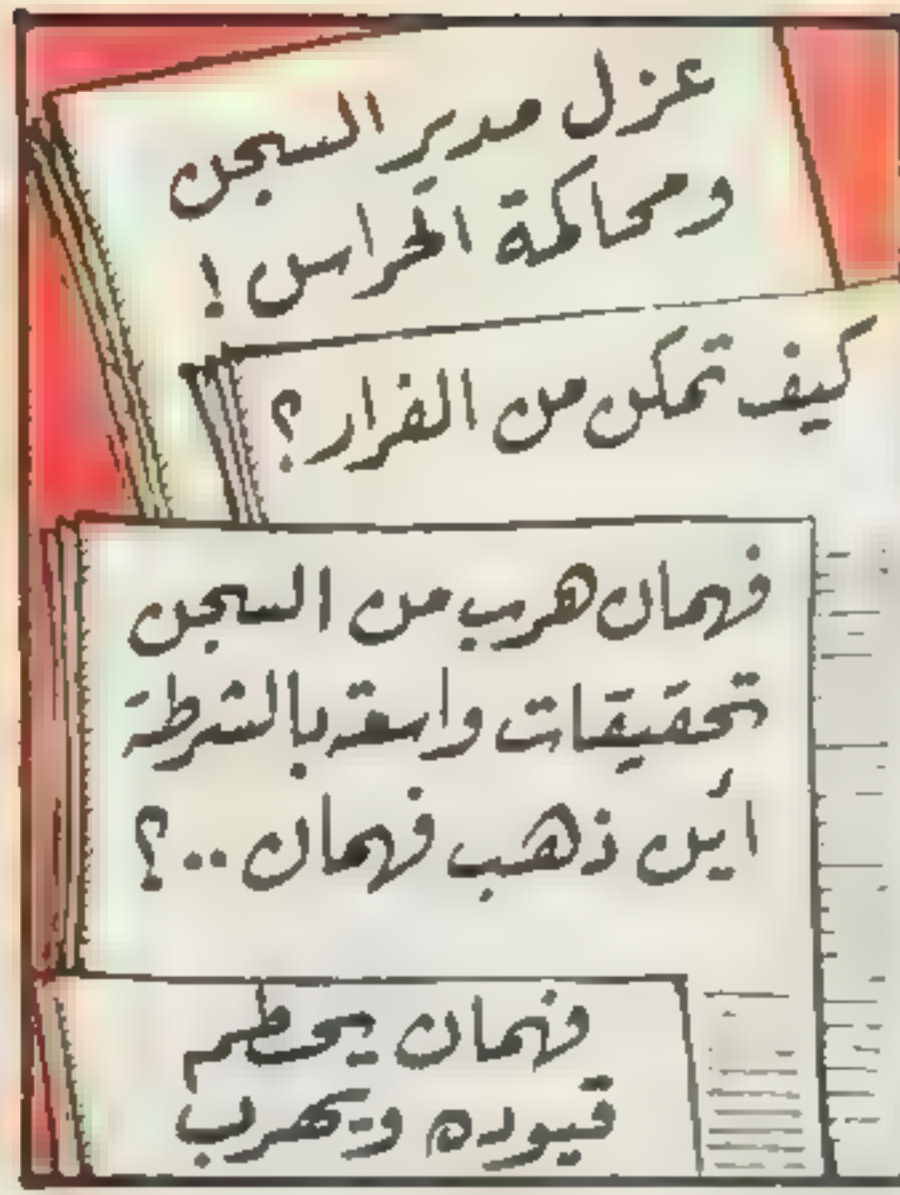 عزل مدير السجن
ومحاكمة الحراس !
كيف تمكن من الفرار ؟
فهمان هرب من السجن
تحقيقات واسعة بالشرطة
اين ذهب فهمان ..؟
فهمان يحطم
قيوده ويهرب